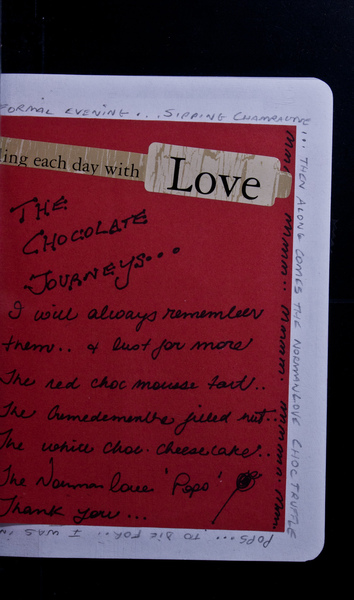 FORMAL EVENING... SIPPING CHAMPAGNE...
ling each day with Love
THE
CHOCOLATE
JOURNEYS...
I will always remember
them.. & lust for more
The red choc mousse tart..
The filled
The white choc. cheesecake..
The Norman love 'Pops'
Thank you...
mmm... mmmm... mmmm. mmmm.
THEN ALONG COMES THE NORMANLOVE CHOC TRUFFLE
POPS... TO DIE FOR.. I WAS IN